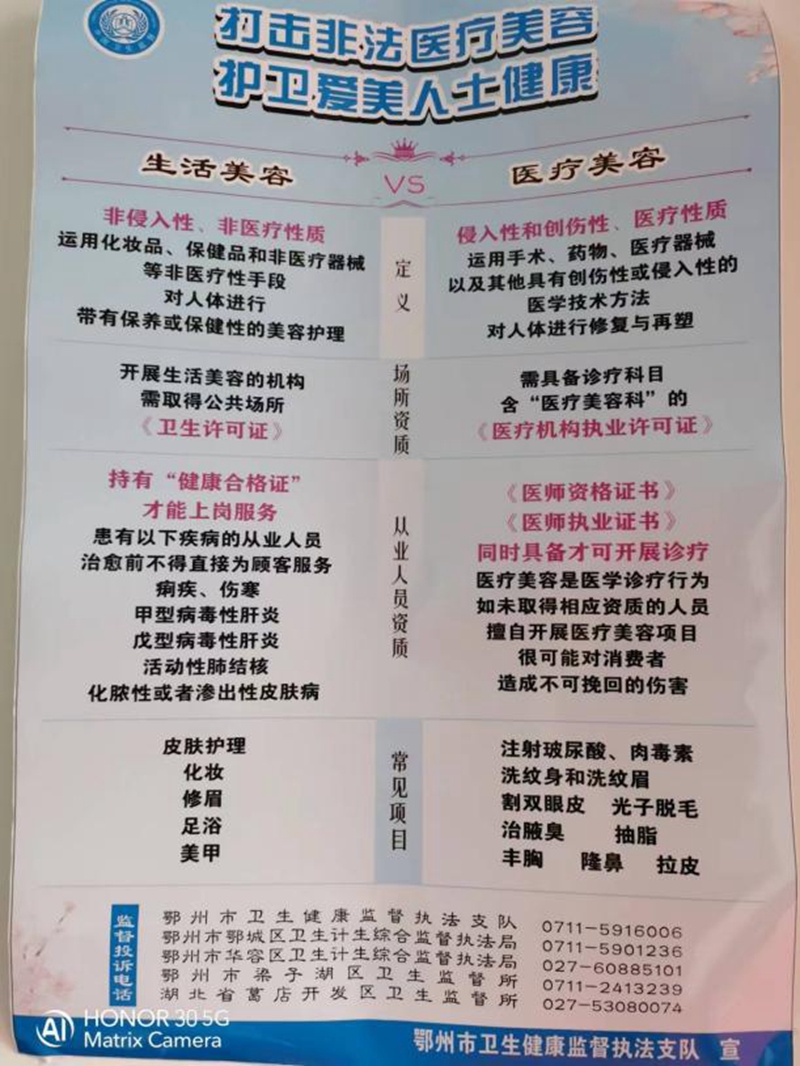 打击非法医疗美容
护卫爱美人士健康
生活美容
VS
医疗美容
非侵入性、非医疗性质
运用化妆品、保健品和非医疗器械
等非医疗性手段
对人体进行
带有保养或保健性的美容护理
定义
侵入性和创伤性、医疗性质
运用手术、药物、医疗器械
以及其他具有创伤性或侵入性的
医学技术方法
对人体进行修复与再塑
开展生活美容的机构
需取得公共场所
《卫生许可证》
场所资质
需具备诊疗科目
含“医疗美容科”的
《医疗机构执业许可证》
持有“健康合格证”
才能上岗服务
患有以下疾病的从业人员
治愈前不得直接为顾客服务
痢疾、伤寒
甲型病毒性肝炎
戊型病毒性肝炎
活动性肺结核
化脓性或者渗出性皮肤病
从业人员资质
《医师资格证书》
《医师执业证书》
同时具备才可开展诊疗
医疗美容是医学诊疗行为
如未取得相应资质的人员
擅自开展医疗美容项目
很可能对消费者
造成不可挽回的伤害
皮肤护理
化妆
修眉
足浴
美甲
常见项目
注射玻尿酸、肉毒素
洗纹身和洗纹眉
割双眼皮 光子脱毛
治腋臭 抽脂
丰胸 隆鼻 拉皮
监督投诉电话
鄂州市卫生健康监督执法支队 0711-5916006
鄂州市鄂城区卫生计生综合监督执法局 0711-5901236
鄂州市华容区卫生计生综合监督执法局 027-60885101
鄂州市梁子湖区卫生监督所 0711-2413239
湖北省葛店开发区卫生监督所 027-53080074
AI HONOR 30 5G
Matrix Camera
鄂州市卫生健康监督执法支队 宣